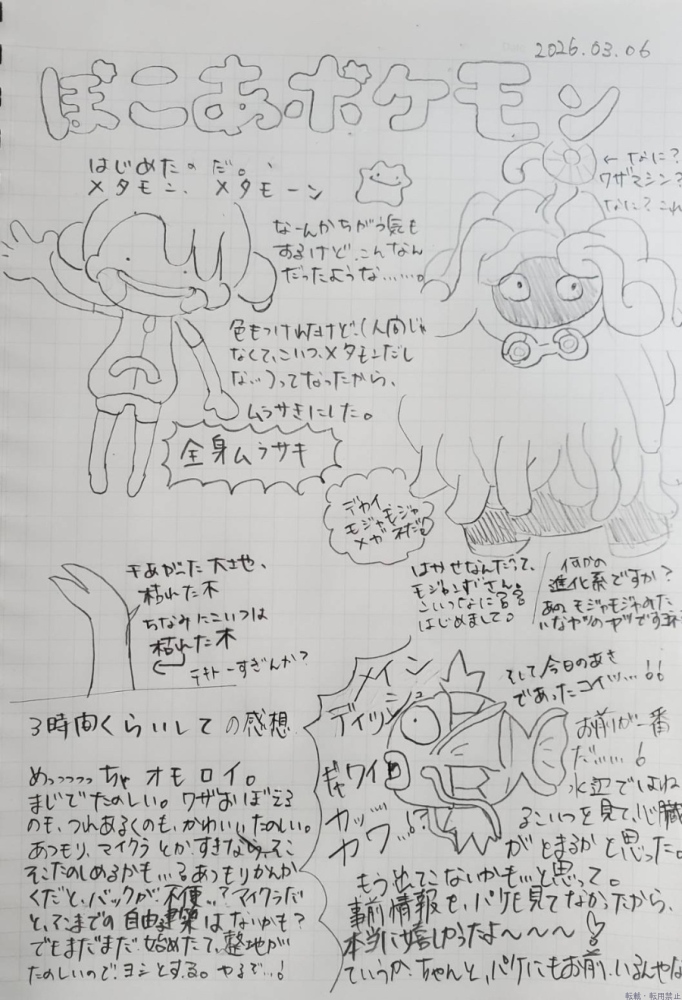 2026.03.06
ぽこあポケモン
はじめたのだ。
メタモン、メタモーン
← なに?
ワザマシン?
なに?これ
なーんかちがう気も
するけど、こんなん
だったような……。
色もつけれたけど、(人間じゃ
なくて、こいつ、メタモンだし
な…)ってなったから、
ムラサキにした。
全身ムラサキ
デカイ
モジャモジャ
メガネだ
はかせなんだって、
モジャンボさん。
こいつなに?
はじめまして。
何かの
進化系ですか?
あの、モジャモジャみた
いなヤツのヤツですヨネ
干あがった大地、
枯れた木
ちなみにこいつは
枯れた木
テキトーすぎんか?
3時間くらいしての感想
めっっっっちゃオモロイ。
まじでたのしい。ワザおぼえる
のも、つれあるくのも、かわいいたのしい。
あつもり、マイクラとか、すきなら、そこ
そこたのしめるかも…るあつもりかんか
くだと、バックが不便…?マイクラだ
と、そこまでの自由建築はないかも?
でもまだまだ始めたて、整地が
たのしいので、ヨシとする。やるで…!
メイン
ディッシュ
ギャワイ
カッ…
カワ…!?
そして今日のあさ
であったコイツ…!!
お前が一番
だ……!
水辺ではね
るこいつを見て、心臓
がとまるかと思った。
もう出てこないかも…と思って。
事前情報も、パケも見てなかったから、
本当に嬉しかったよ〜〜〜!
ていうか、ちゃんと、パケにもお前、いるんやな
転載・転用禁止